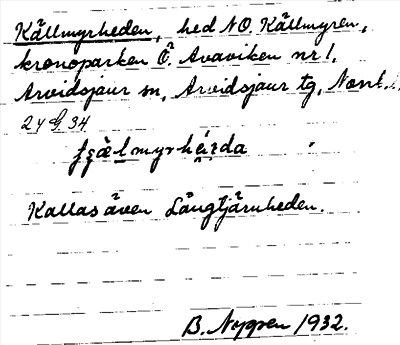 Källmyrheden, hed NO. Källmyren,
kronoparken Ö. Avaviken nr 1,
Arvidsjaur sn, Arvidsjaur tg, Norrb.
24 G. 34
Kallas även Långtjärnheden.
B. Nygren 1932.